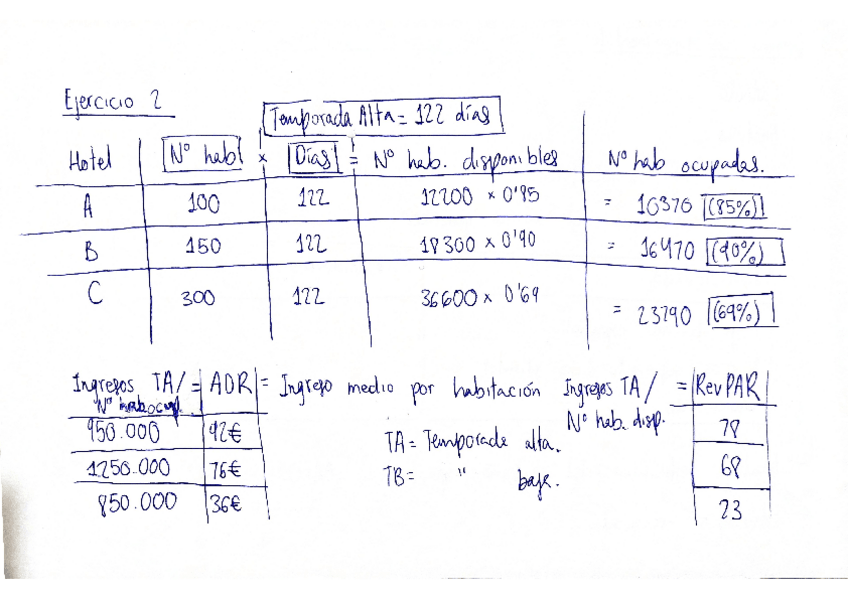 Ejercicio 2
Temporada Alta = 122 días
Hotel Nº hab x Días = Nº hab. disponibles Nº hab ocupadas.
A 100 122 12200 x 0'85 = 10370 (85%)
B 150 122 18300 x 0'90 = 16470 (90%)
C 300 122 36600 x 0'69 = 23790 (69%)
Ingresos TA/ = ADR = Ingreso medio por habitación Ingresos TA/ = RevPAR
Nº hab.ocup. Nº hab. disp.
950.000 92€ TA = Temporade alta. 78
1250.000 76€ TB = " baje. 68
850.000 36€ 23